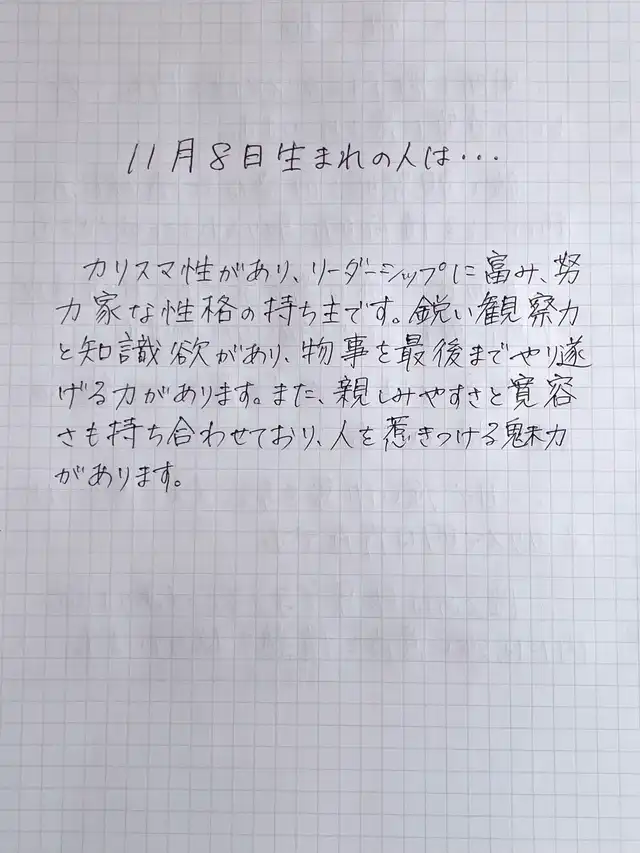 11月8日生まれの人は・・・
カリスマ性があり、リーダーシップに富み、努
力家な性格の持ち主です。鋭い観察力
と知識欲があり、物事を最後までやり遂
げる力があります。また、親しみやすさと寛容
さも持ち合わせており、人を惹きつける魅力
があります。